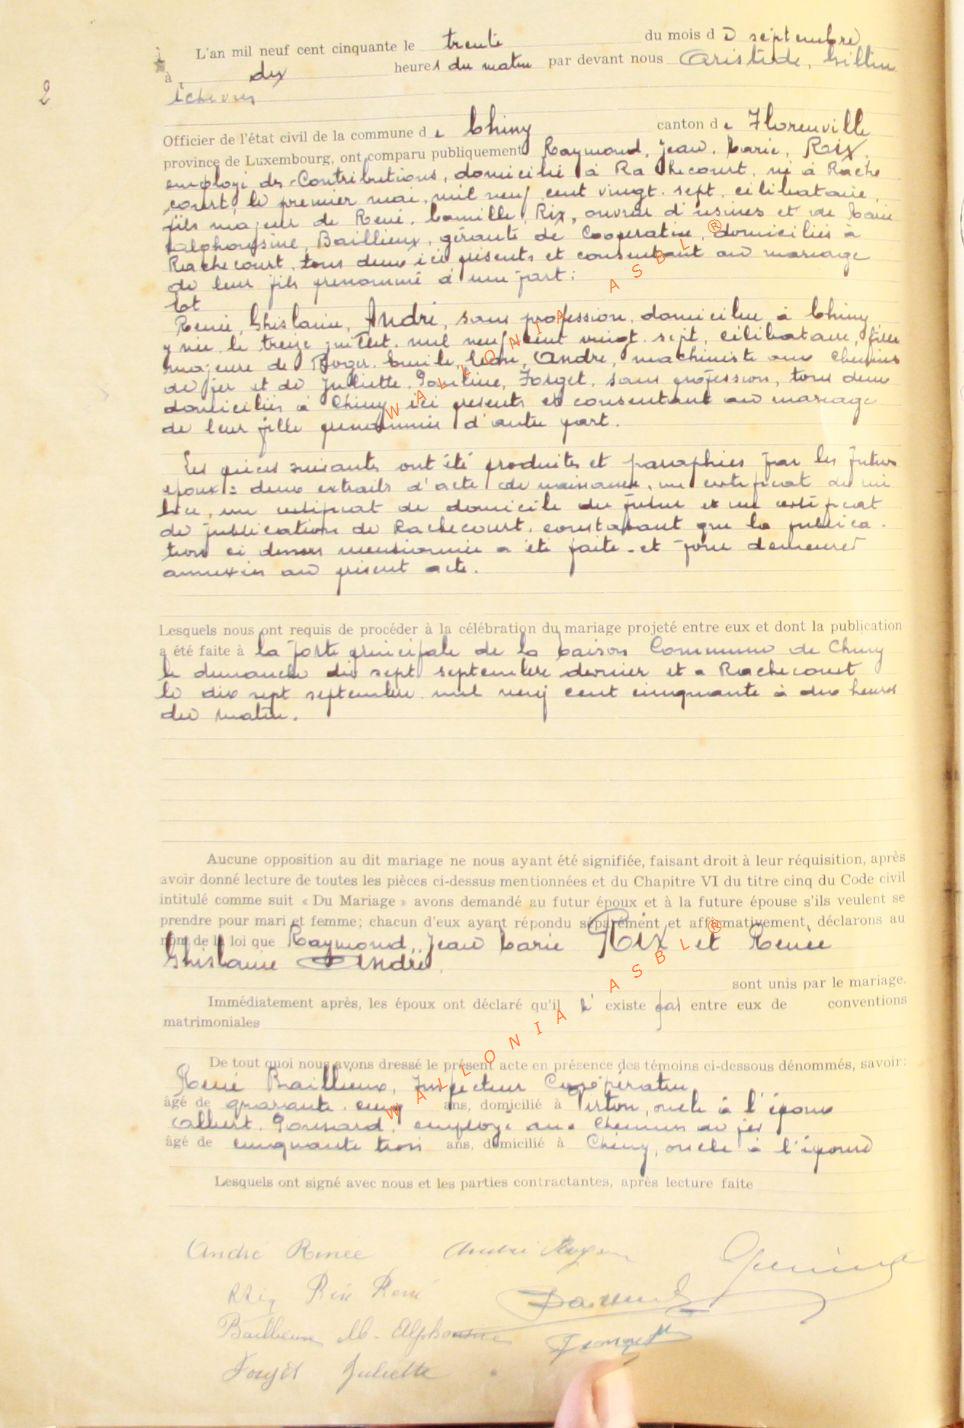 2
L'an mil neuf cent cinquante le trente du mois d e septembre
à dix heures du matin par devant nous Aristide, Gillin
échevin
Officier de l'état civil de la commune d e Chiny canton d e Florenville
province de Luxembourg, ont comparu publiquement Raymond, Jean, Marie, RIX,
employé des Contributions, domicilié à Rachecourt, né à Rache
court, le premier mai, mil neuf cent vingt-sept, célibataire,
fils majeur de René, Camille, Rix, ouvrier d'usines et de Marie
Alphonsine, Baillieux, gérante de Coopérative, domiciliés à
Rachecourt, tous deux ici présents et consentant au mariage
de leur fils prénommé d'une part;
Et
Renée, Ghislaine, André, sans profession, domiciliée à Chiny
y née le treize juillet, mil neuf cent vingt-sept, célibataire, fille
majeure de Roger, Emile, Léon, André, machiniste aux Chemins
de fer et de Juliette, Pauline, Forget, sans profession, tous deux
domiciliés à Chiny ici présents et consentant au mariage
de leur fille prénommée d'autre part.
Les pièces suivantes ont été produites et paraphées par les futurs
époux: deux extraits d'acte de naissance, un certificat de mi
lice, un certificat de domicile du futur et un certificat
de publication de Rachecourt, constatant que la publica-
tion ci dessus mentionnée a été faite et pour demeurer
annexées au présent acte.
Lesquels nous ont requis de procéder à la célébration du mariage projeté entre eux et dont la publication
a été faite à la porte principale de la Maison Commune de Chiny
le dimanche dix sept septembre dernier et à Rachecourt
le dix sept septembre mil neuf cent cinquante à dix heures
du matin.
Aucune opposition au dit mariage ne nous ayant été signifiée, faisant droit à leur réquisition, après
avoir donné lecture de toutes les pièces ci-dessus mentionnées et du Chapitre VI du titre cinq du Code civil
intitulé comme suit « Du Mariage » avons demandé au futur époux et à la future épouse s'ils veulent se
prendre pour mari et femme; chacun d'eux ayant répondu séparément et affirmativement, déclarons au
nom de la loi que Raymond, Jean Marie RIX et Renée
Ghislaine André
sont unis par le mariage.
Immédiatement après, les époux ont déclaré qu'il n' existe pas entre eux de conventions
matrimoniales
De tout quoi nous avons dressé le présent acte en présence des témoins ci-dessous dénommés, savoir:
René Baillieux, Inspecteur Coopérative
âgé de quarante cinq ans, domicilié à Virton, oncle à l'époux
Ponsard, employé aux Chemins de fer
âgé de cinquante trois ans, domicilié à Chiny, oncle à l'épouse
Lesquels ont signé avec nous et les parties contractantes, après lecture faite
André Renée André Roger
Rix Rix René
Baillieux M. Alphonsine
Forget Juliette
WALLONIA ASBL ®
WALLONIA ASBL ®